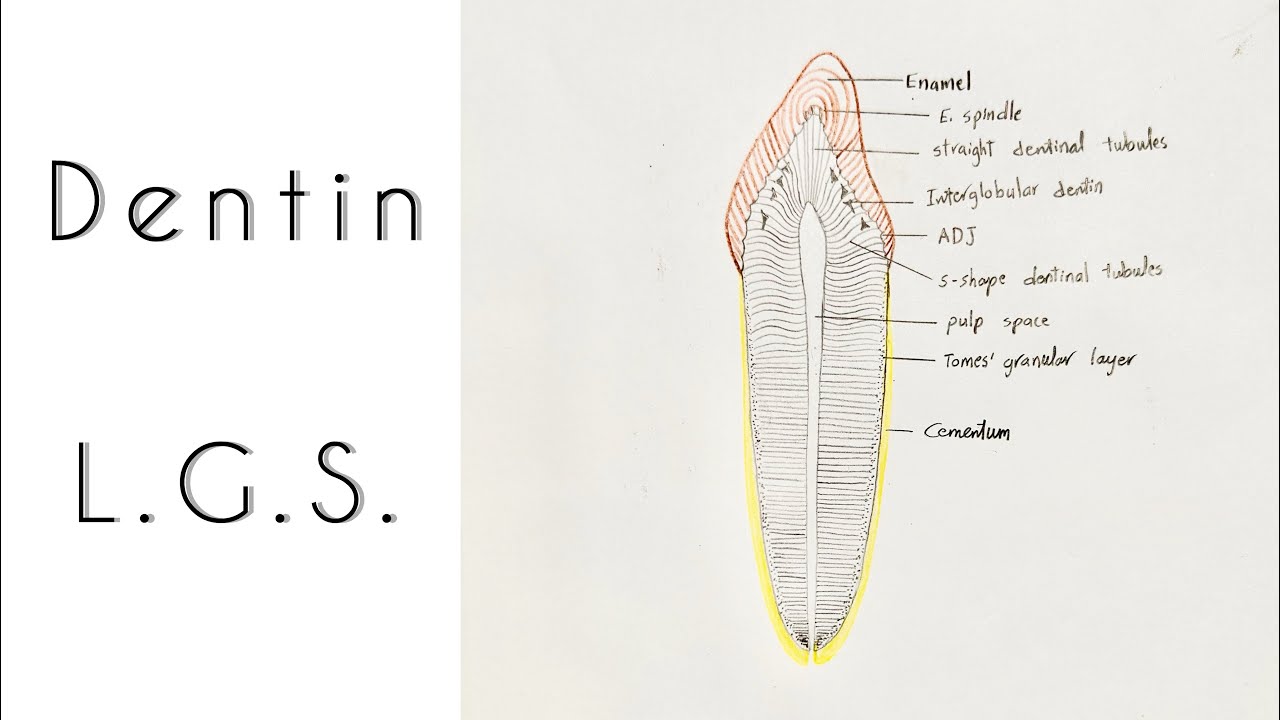 Dentin
L.G.S.
Enamel
E. spindle
straight dentinal tubules
Interglobular dentin
ADJ
s-shape dentinal tubules
pulp space
Tomes' granular layer
Cementum